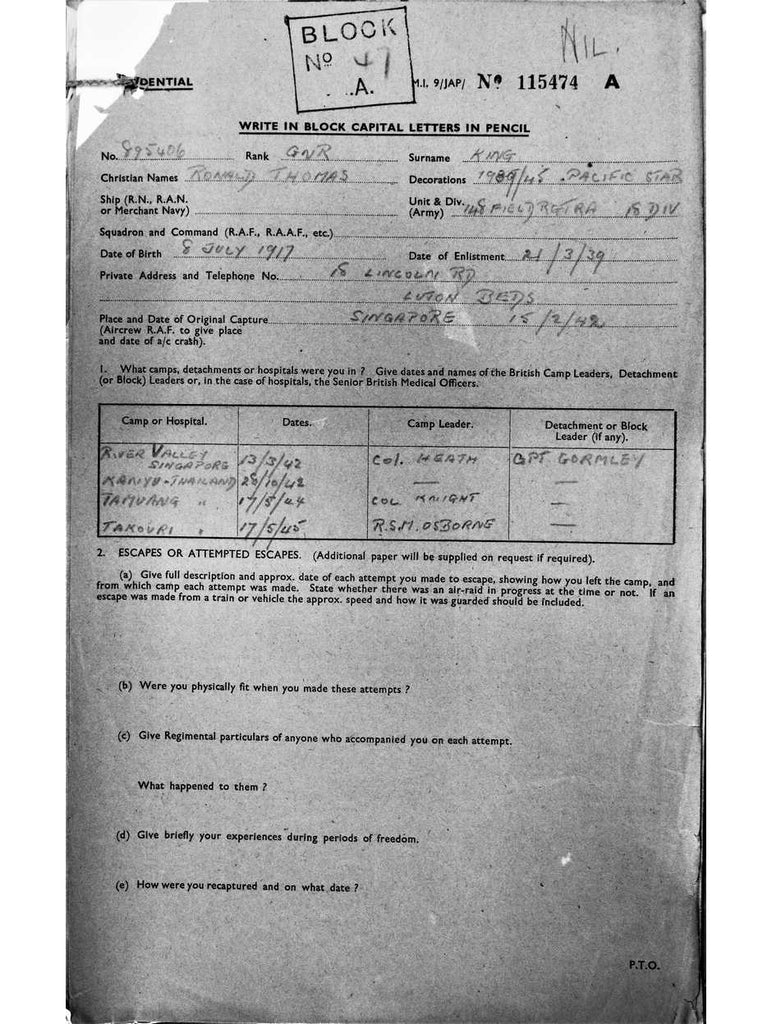 BLOCK
Nº 47
A.
NIL.
DENTIAL
M.I. 9/JAP/ Nº 115474 A
WRITE IN BLOCK CAPITAL LETTERS IN PENCIL
No. 895406 Rank GNR Surname KING
Christian Names RONALD THOMAS Decorations 1939/45 . PACIFIC STAR
Ship (R.N., R.A.N. or Merchant Navy)
Unit & Div. (Army) 148 FIELD RGT RA 18 DIV
Squadron and Command (R.A.F., R.A.A.F., etc.)
Date of Birth 8 JULY 1917 Date of Enlistment 21/3/39
Private Address and Telephone No. 18 LINCOLN RD
LUTON BEDS
Place and Date of Original Capture SINGAPORE 15/2/42
(Aircrew R.A.F. to give place
and date of a/c crash).
1. What camps, detachments or hospitals were you in ? Give dates and names of the British Camp Leaders, Detachment
(or Block) Leaders or, in the case of hospitals, the Senior British Medical Officers.
Camp or Hospital. Dates. Camp Leader. Detachment or Block Leader (if any).
RIVER VALLEY SINGAPORE 13/3/42 COL. HEATH CPT GORMLEY
KANYU - THAILAND 28/10/42 — —
TAMUANG " 17/5/44 COL KNIGHT —
TAKOURI " 17/5/45 R.S.M. OSBORNE —
2. ESCAPES OR ATTEMPTED ESCAPES. (Additional paper will be supplied on request if required).
(a) Give full description and approx. date of each attempt you made to escape, showing how you left the camp, and
from which camp each attempt was made. State whether there was an air-raid in progress at the time or not. If an
escape was made from a train or vehicle the approx. speed and how it was guarded should be included.
(b) Were you physically fit when you made these attempts ?
(c) Give Regimental particulars of anyone who accompanied you on each attempt.
What happened to them ?
(d) Give briefly your experiences during periods of freedom.
(e) How were you recaptured and on what date ?
P.T.O.